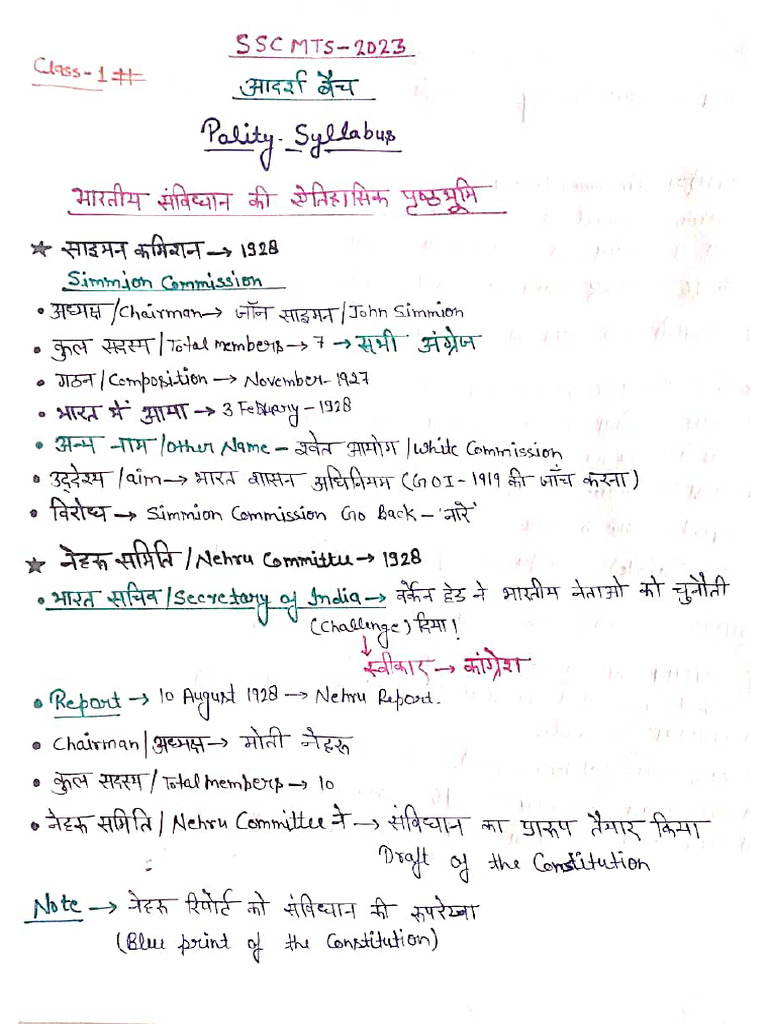 SSC MTS-2023
Class-1#
आदर्श बैच
Pality Syllabus
भारतीय संविधान की ऐतिहासिक पृष्ठभूमि
★ साइमन कमिशन → 1928
Simmion Commission
• अध्यक्ष/Chairman → जॉन साइमन/John Simmion
• कुल सदस्य/Total members → 7 → सभी अंग्रेज
• गठन/Composition → November-1927
• भारत में आया → 3 Febuary-1928
• अन्य नाम/Other Name - श्वेत आयोग/White Commission
• उद्देश्य/aim → भारत शासन अधिनियम (GOI-1919 की जाँच करना)
• विरोध → Simmion Commission Go Back - 'नारे'
★ नेहरू समिति/Nehru Committee → 1928
• भारत सचिव/Secretary of India → वर्केन हेड ने भारतीय नेताओ को चुनौती
(Challenge) दिया!
↓
स्वीकार → कांग्रेश
• Report → 10 August 1928 → Nehru Report.
• Chairman/अध्यक्ष → मोती नेहरू
• कुल सदस्य/Total members → 10
• नेहरू समिति/Nehru Committee ने → संविधान का प्रारूप तैयार किया
Draft of the Constitution
Note → नेहरू रिपोर्ट को संविधान की रूपरेखा
(Blue print of the Constitution)